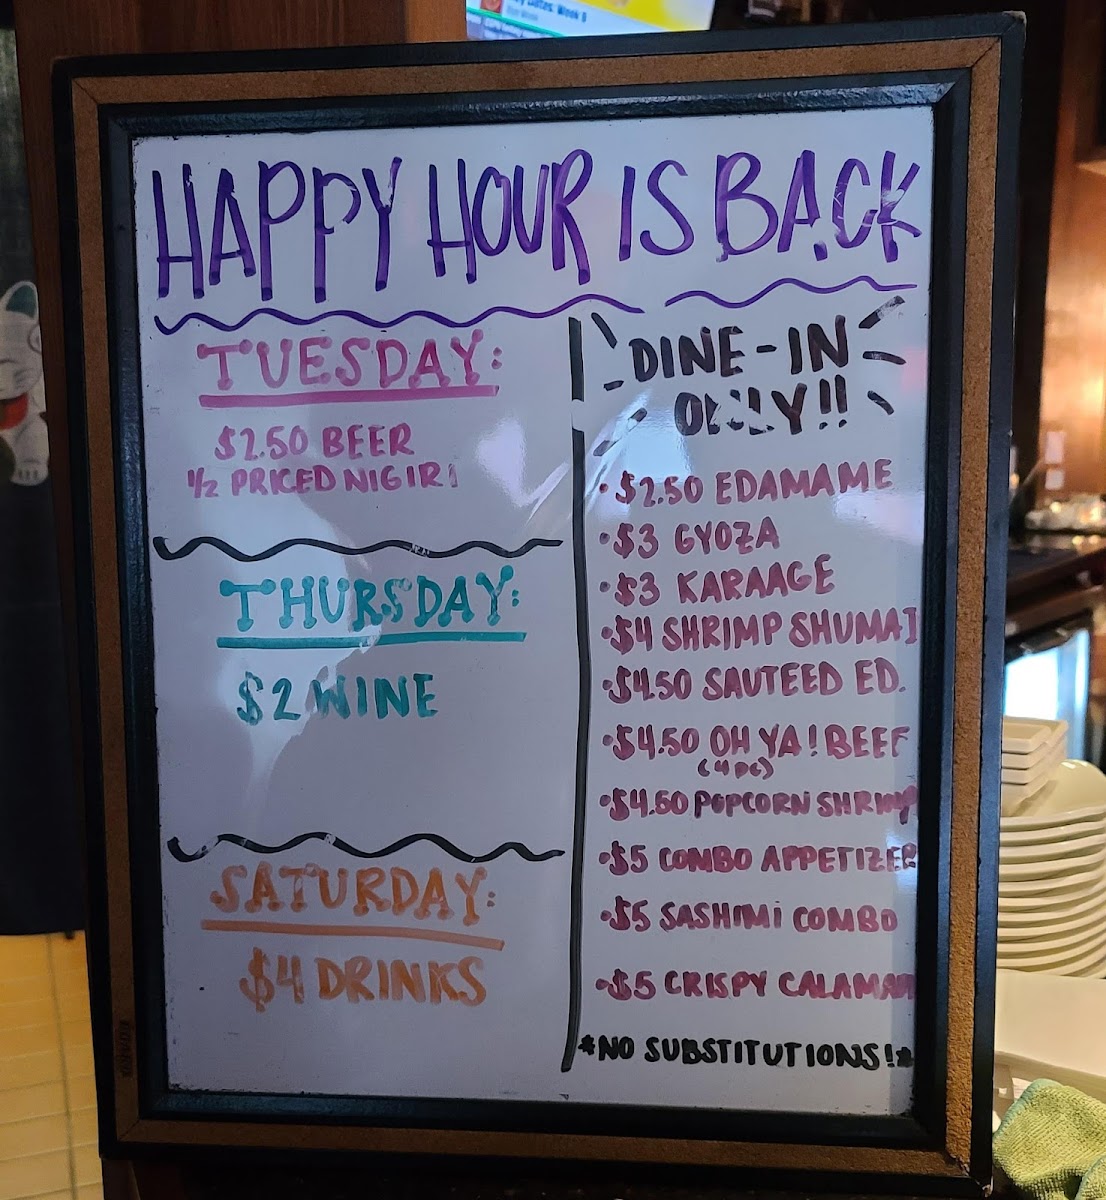 HAPPY HOUR IS BACK
TUESDAY:
$2.50 BEER
1/2 PRICED NIGIRI
THURSDAY:
$2 WINE
SATURDAY:
$4 DRINKS
DINE-IN
ONLY!!
• $2.50 EDAMAME
• $3 GYOZA
• $3 KARAAGE
• $4 SHRIMP SHUMAI
• $4.50 SAUTEED ED.
• $4.50 OH YA! BEEF
(4 PC)
• $4.50 POPCORN SHRIMP
• $5 COMBO APPETIZER
• $5 SASHIMI COMBO
• $5 CRISPY CALAMARI
*NO SUBSTITUTIONS!*